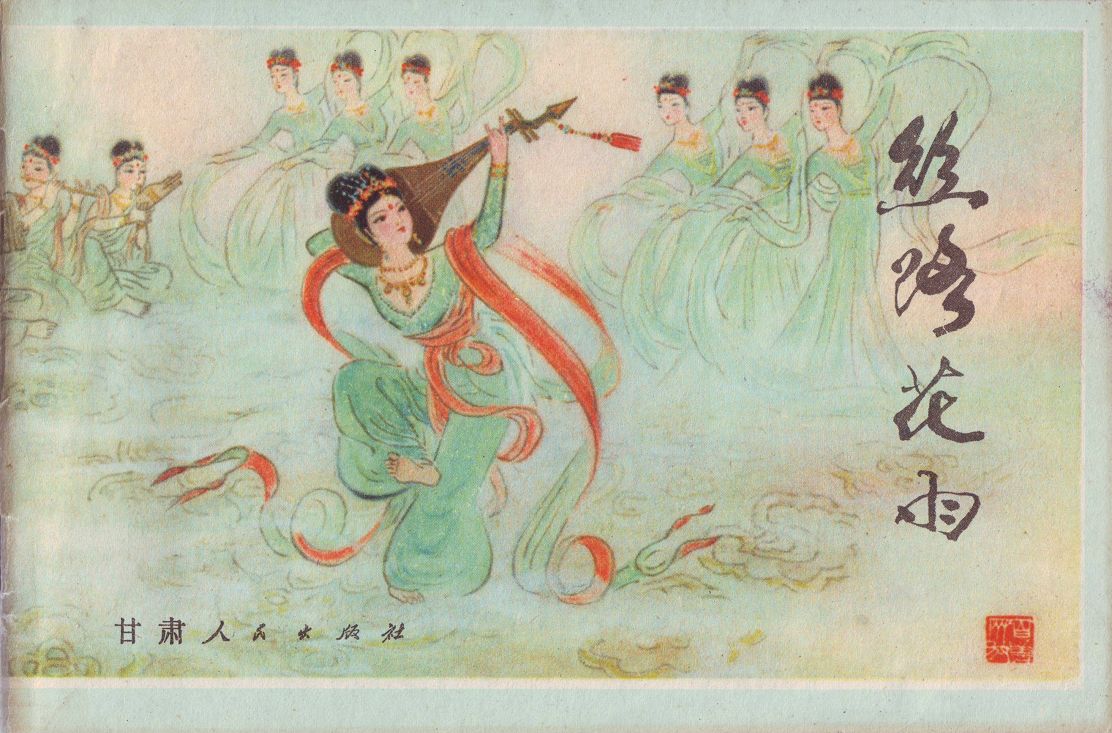 丝路花雨
甘肃人民出版社